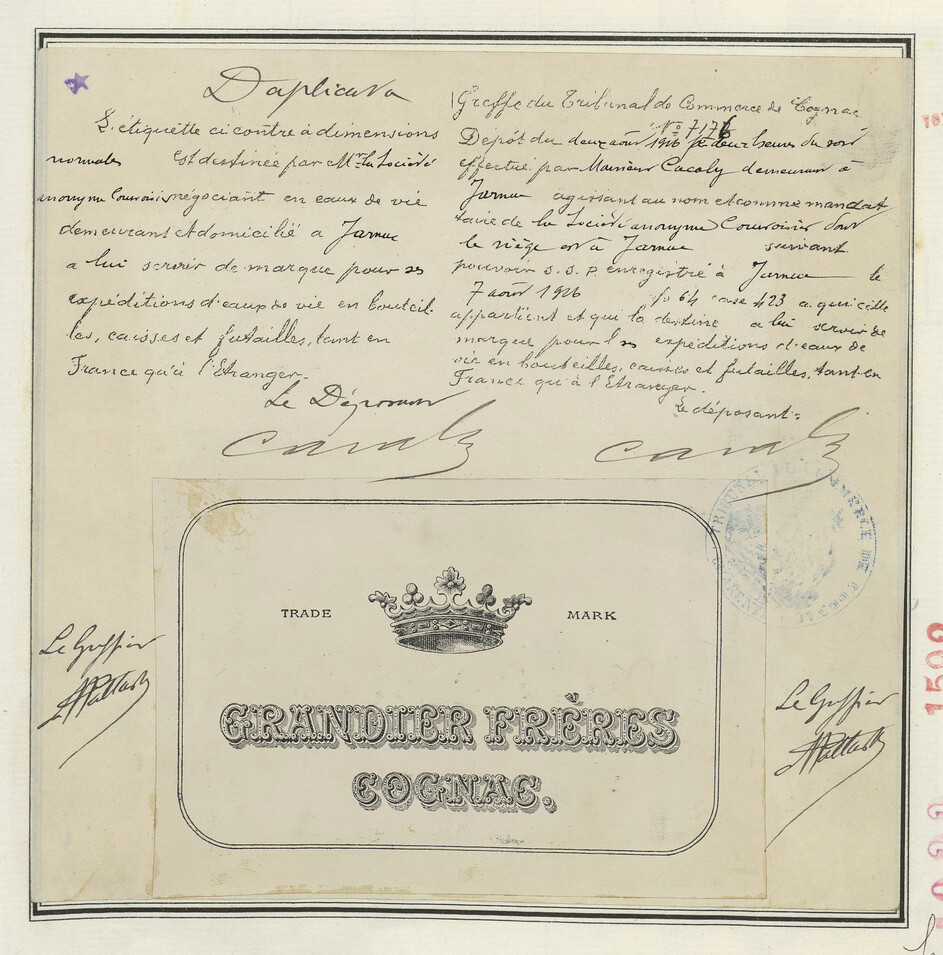 Duplicata
L'étiquette ci contre à dimensions
normales est destinée par Mr. la Société
anonyme Courvoisier négociant en eaux de vie
demeurant et domicilié à Jarnac
a lui servir de marque pour ses
expéditions d'eaux de vie en bouteil-
les, caisses et futailles, tant en
France qu'à l'Etranger.
Le Déposant
Greffe du Tribunal de Commerce de Cognac
No 7176
Dépôt du deux août 1926 à deux heures du soir
effectué par Monsieur Cacoly demeurant à
Jarnac agissant au nom et comme mandat
taire de la Société anonyme Courvoisier dont
le siège est à Jarnac suivant
pouvoir S.S.P. enregistré à Jarnac le
7 août 1926 fo 64 case 423 a qui elle
appartient et qui la destine a lui servir de
marque pour les expéditions d'eaux de
vie en bouteilles, caisses et futailles, tant en
France qu'à l'Etranger.
Le déposant:
TRIBUNAL DE COMMERCE DE COGNAC
TRADE MARK
GRANDIER FRÈRES
COGNAC.
Le Greffier
Le Greffier